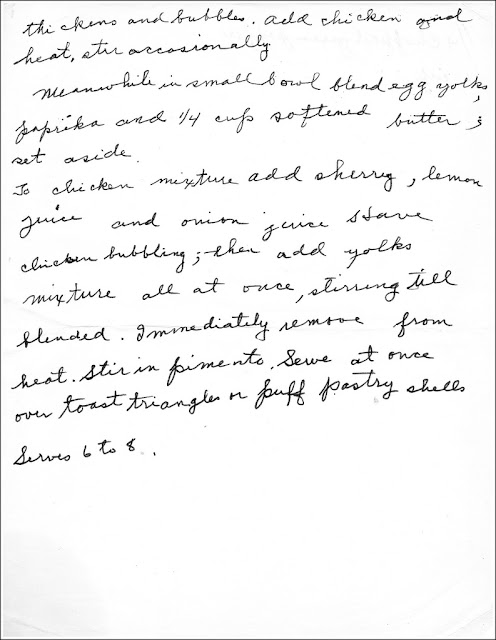 thickens and bubbles. add chicken and
heat, stir accasionally
Meanwhile in small bowl blend egg yolks,
paprika and 1/4 cup softened butter;
set aside.
To chicken mixture add sherry, lemon
juice and onion juice Have
chicken bubbling; then add yolks
mixture all at once, stirring till
blended. Immediately remove from
heat. Stir in pimento. Serve at once
over toast triangles or puff pastry shells
Serves 6 to 8.